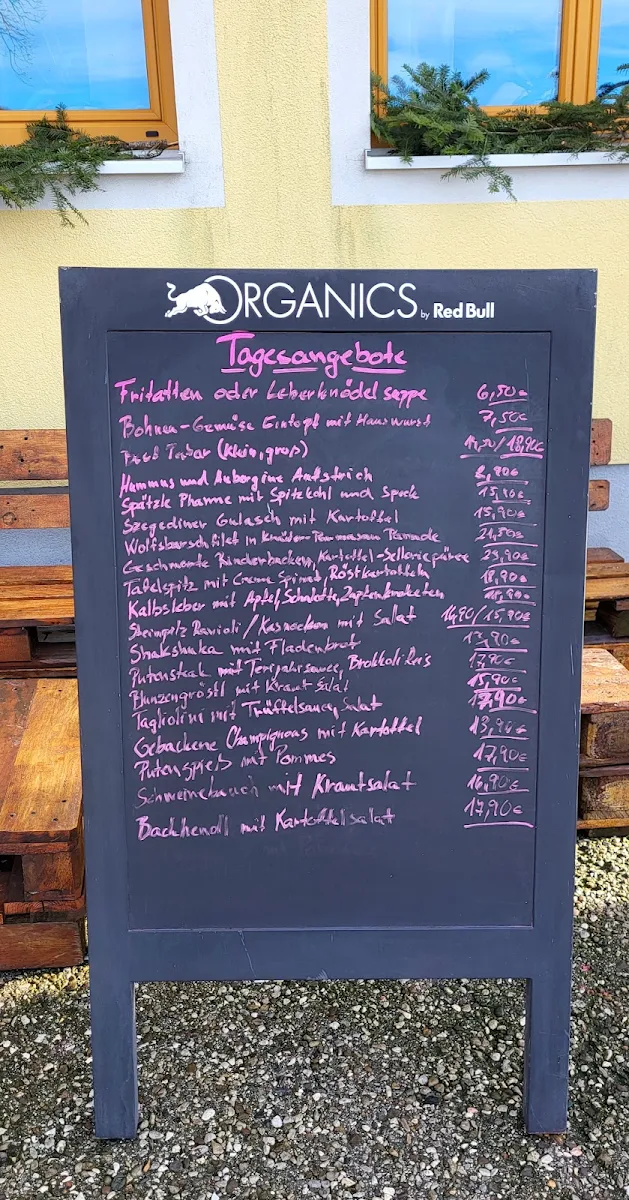 ORGANICS by Red Bull
Tagesangebote
Fritatten oder Leberknödelsuppe 6,50€
Bohnen-Gemüse Eintopf mit Hauswurst 7,50€
Beef Tatar (klein, groß) 14,50/18,90€
Hummus und Aubergine Aufstrich 8,90€
Spätzle Pfanne mit Spitzkohl und Speck
Szegediner Gulasch mit Kartoffel 15,90€
Wolfsbarschfilet in Kräuter-Parmesan Panade
Geschmorte Rinderbacken, Kartoffel-Selleriepüree 23,90€
Tafelspitz mit Creme Spinat, Röstkartoffeln 18,90€
Kalbsleber mit Apfel, Schalotte,
Steinpilz Ravioli/Kasnocken mit Salat 14,90/15,90€
Shakshuka mit Fladenbrot 13,90€
Putensteak mit Teriyakisauce, Brokkoli Reis 17,90€
Blunzengröstl mit Kraut Salat 15,90€
Tagliolini mit Trüffelsauce, Salat 17,90€
Gebackene Champignons mit Kartoffel 13,90€
Putenspieß mit Pommes 17,90€
Schweinebauch mit Krautsalat 16,90€
Backhendl mit Kartoffelsalat 17,90€